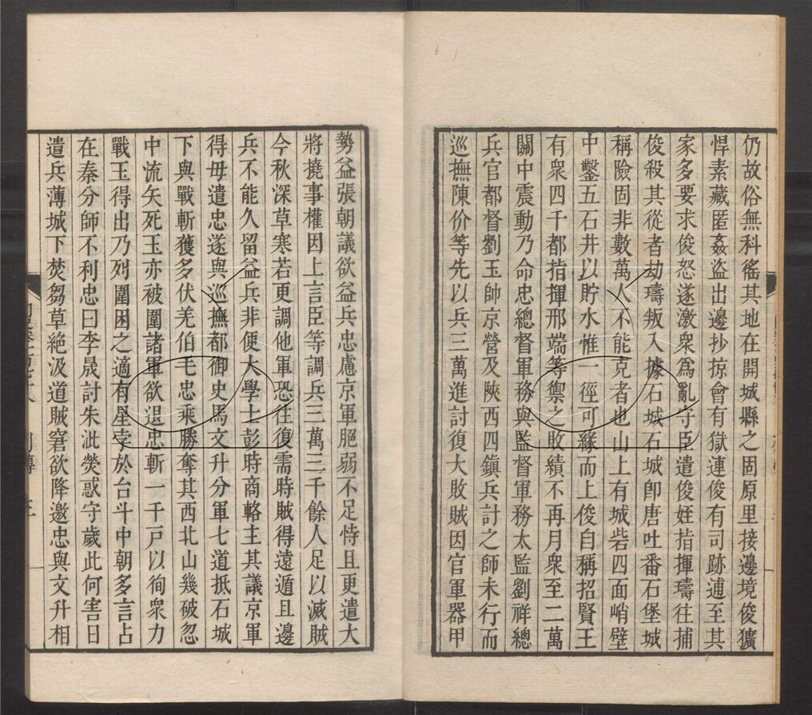 仍故俗無科徭其地在開城縣之固原里接邊境俊獷
悍素藏匿姦盜出邊抄掠會有獄連俊有司跡逋至其
家多要求俊怒遂激衆爲亂守臣遣俊姪指揮璹往捕
俊殺其從者劫璹叛入據石城石城卽唐吐番石堡城
稱險固非數萬人不能克者也山上有城砦四面峭壁
中鑿五石井以貯水惟一徑可緣而上俊自稱招賢王
有衆四千都指揮邢端等禦之敗績不再月衆至二萬
關中震動乃命忠總督軍務與監督軍務太監劉祥總
兵官都督劉玉帥京營及陝西四鎭兵討之師未行而
巡撫陳价等先以兵三萬進討復大敗賊因官軍器甲
勢益張朝議欲益兵忠慮京軍脃弱不足恃且更遣大
將撓事權因上言臣等調兵三萬三千餘人足以滅賊
今秋深草寒若更調他軍恐往復需時賊得遠遁且邊
兵不能久留益兵非便大學士彭時商輅主其議京軍
得毋遣忠遂與巡撫都御史馬文升分軍七道抵石城
下與戰斬獲多伏羌伯毛忠乘勝奪其西北山幾破忽
中流矢死玉亦被圍諸軍欲退忠斬一千戸以徇衆力
戰玉得出乃列圍困之適有星孛於台斗中朝多言占
在秦分師不利忠曰李晟討朱泚熒惑守歲此何害日
遣兵薄城下焚芻草絶汲道賊窘欲降邀忠與文升相
列傳